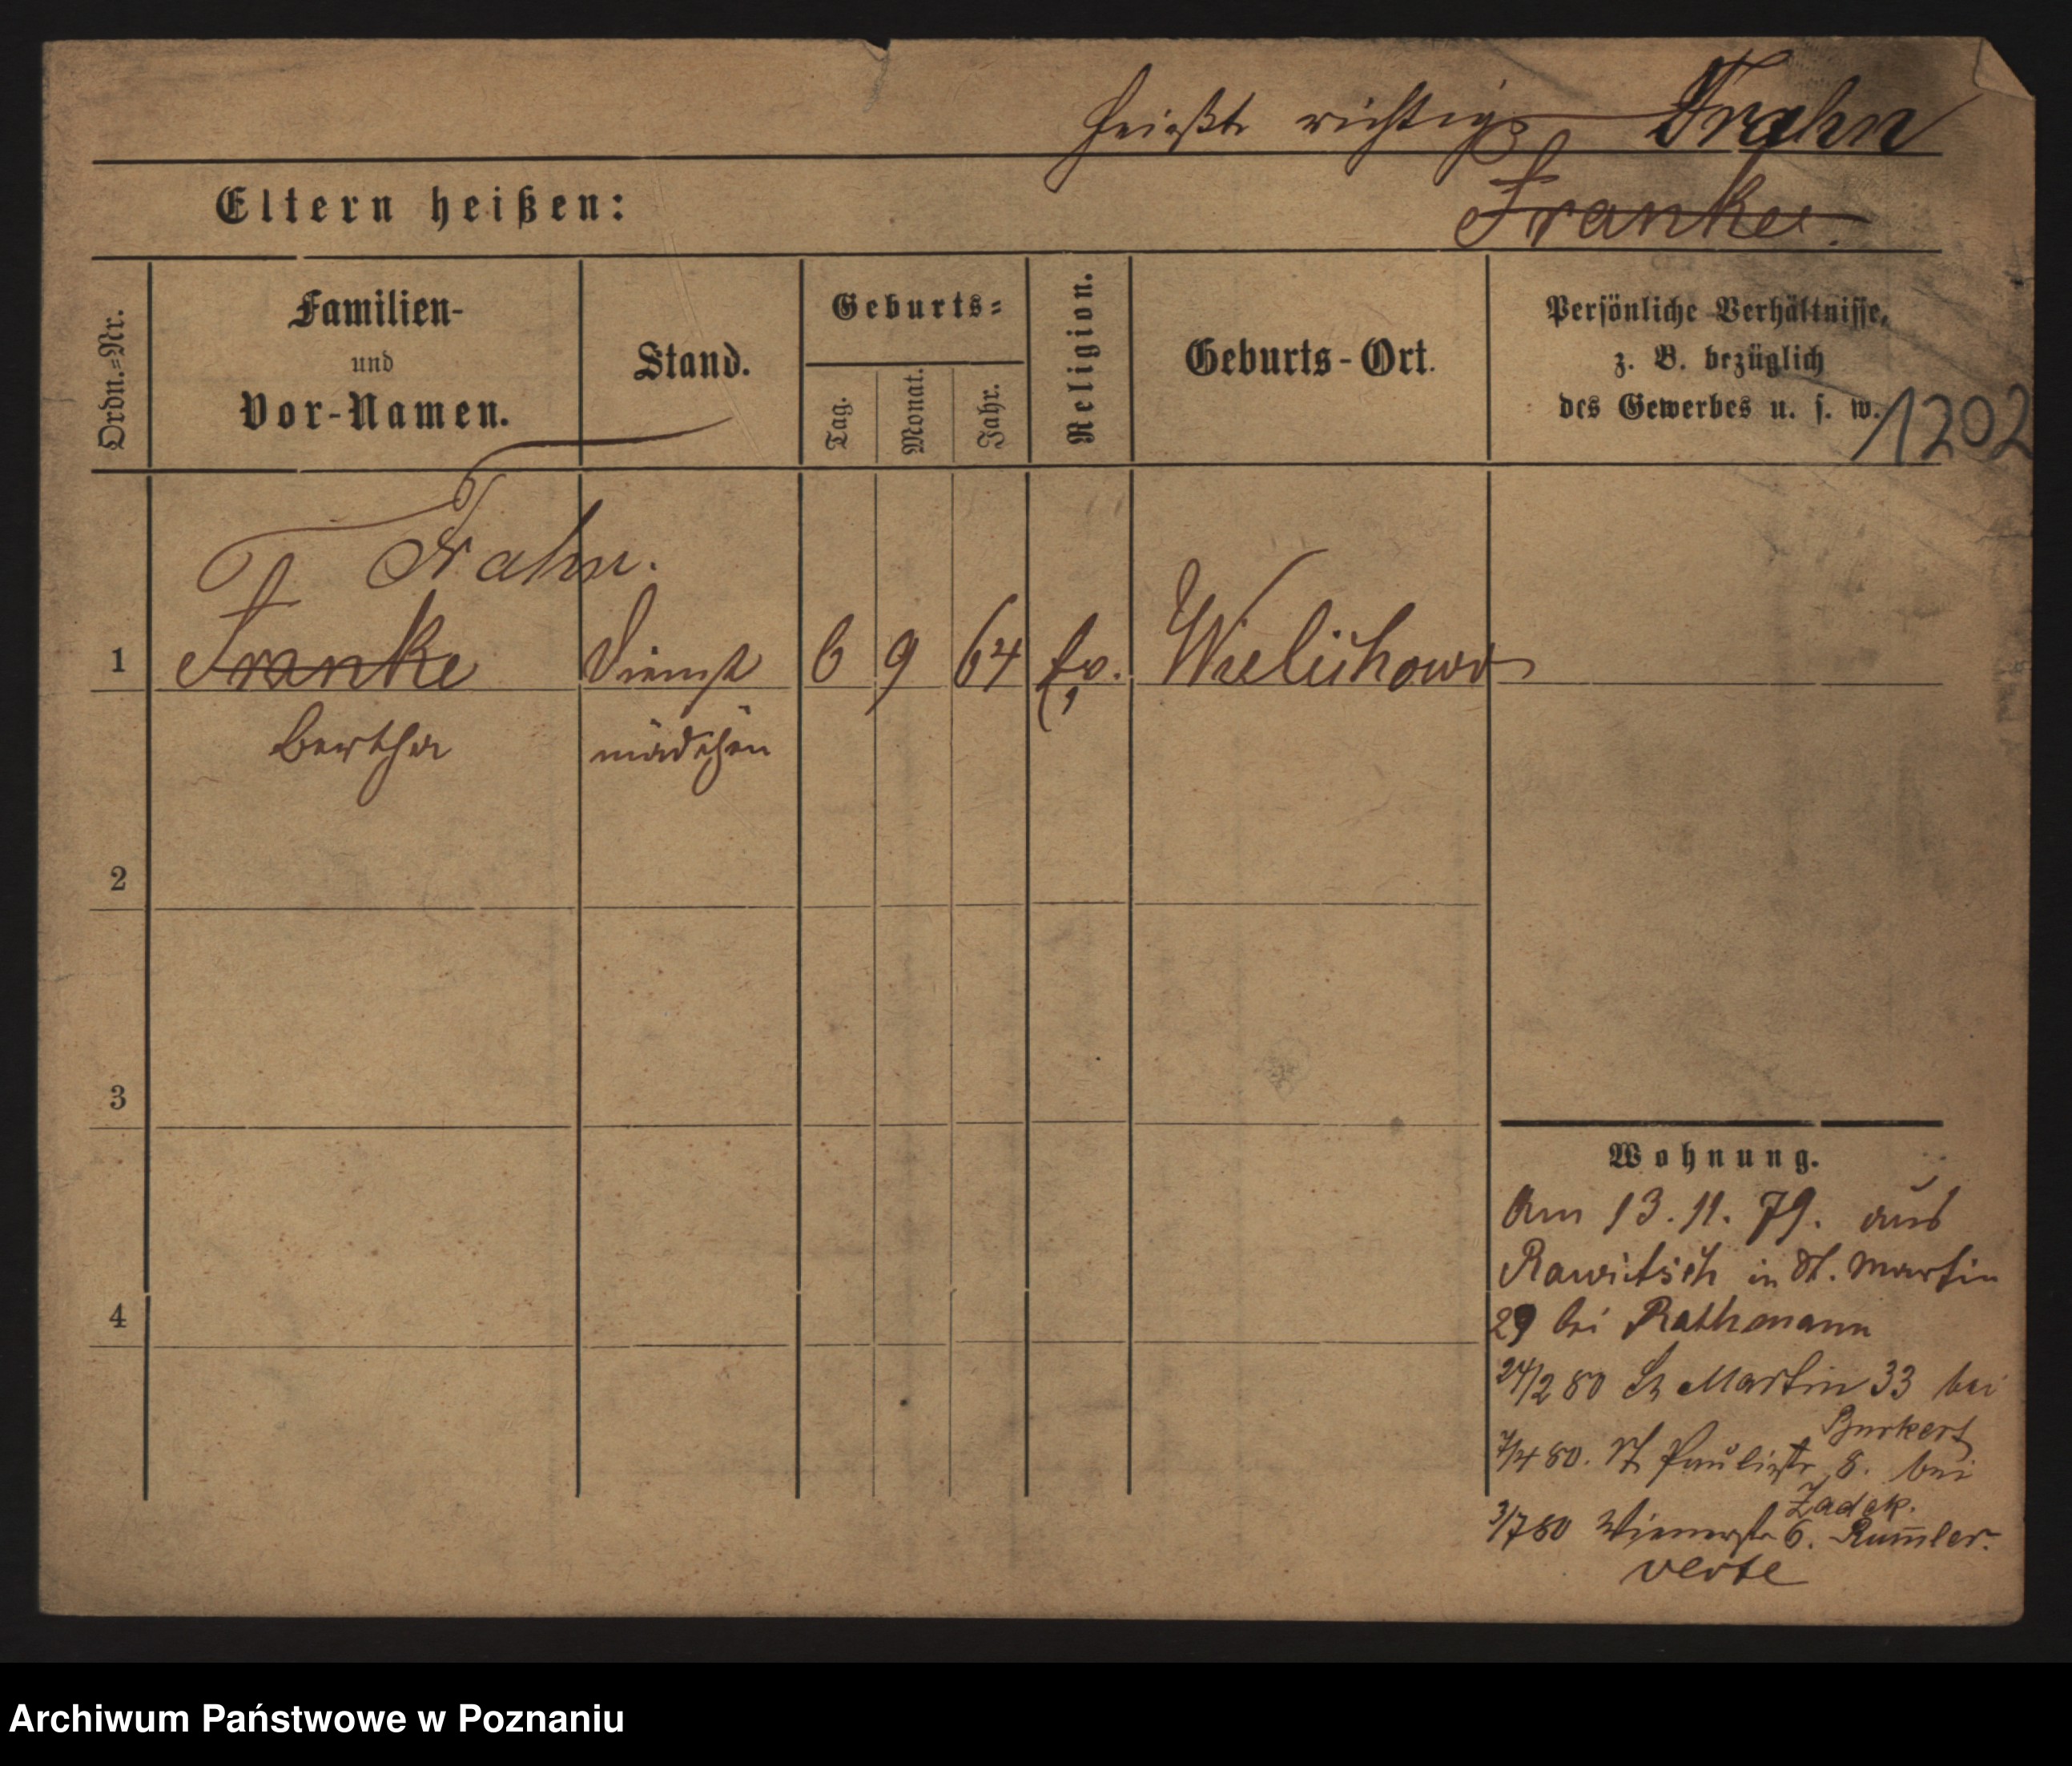 heißt richtig Frahn
Eltern heißen:
Franke.
Ordn.=Nr.
Familien-
und
Vor-Namen.
Stand.
Geburts=
Tag.
Monat.
Jahr.
Religion.
Geburts-Ort.
Persönliche Verhältnisse,
z. B. bezüglich
des Gewerbes u. s. w.
1202
Frahn.
1 Franke Dienst 6 9 64 ev. Wielichowo
Bertha mädchen
2
3
4
Wohnung.
Am 13. 11. 79. aus
Rawitsch in St. Martin
29 bei Rathmann
24/2 80 St Martin 33 bei
Burkert
7/4 80. Paulistr 8. bei
Zadek.
3/7 80 Wienerstr 6. Rum̅ler.
verte
Archiwum Państwowe w Poznaniu